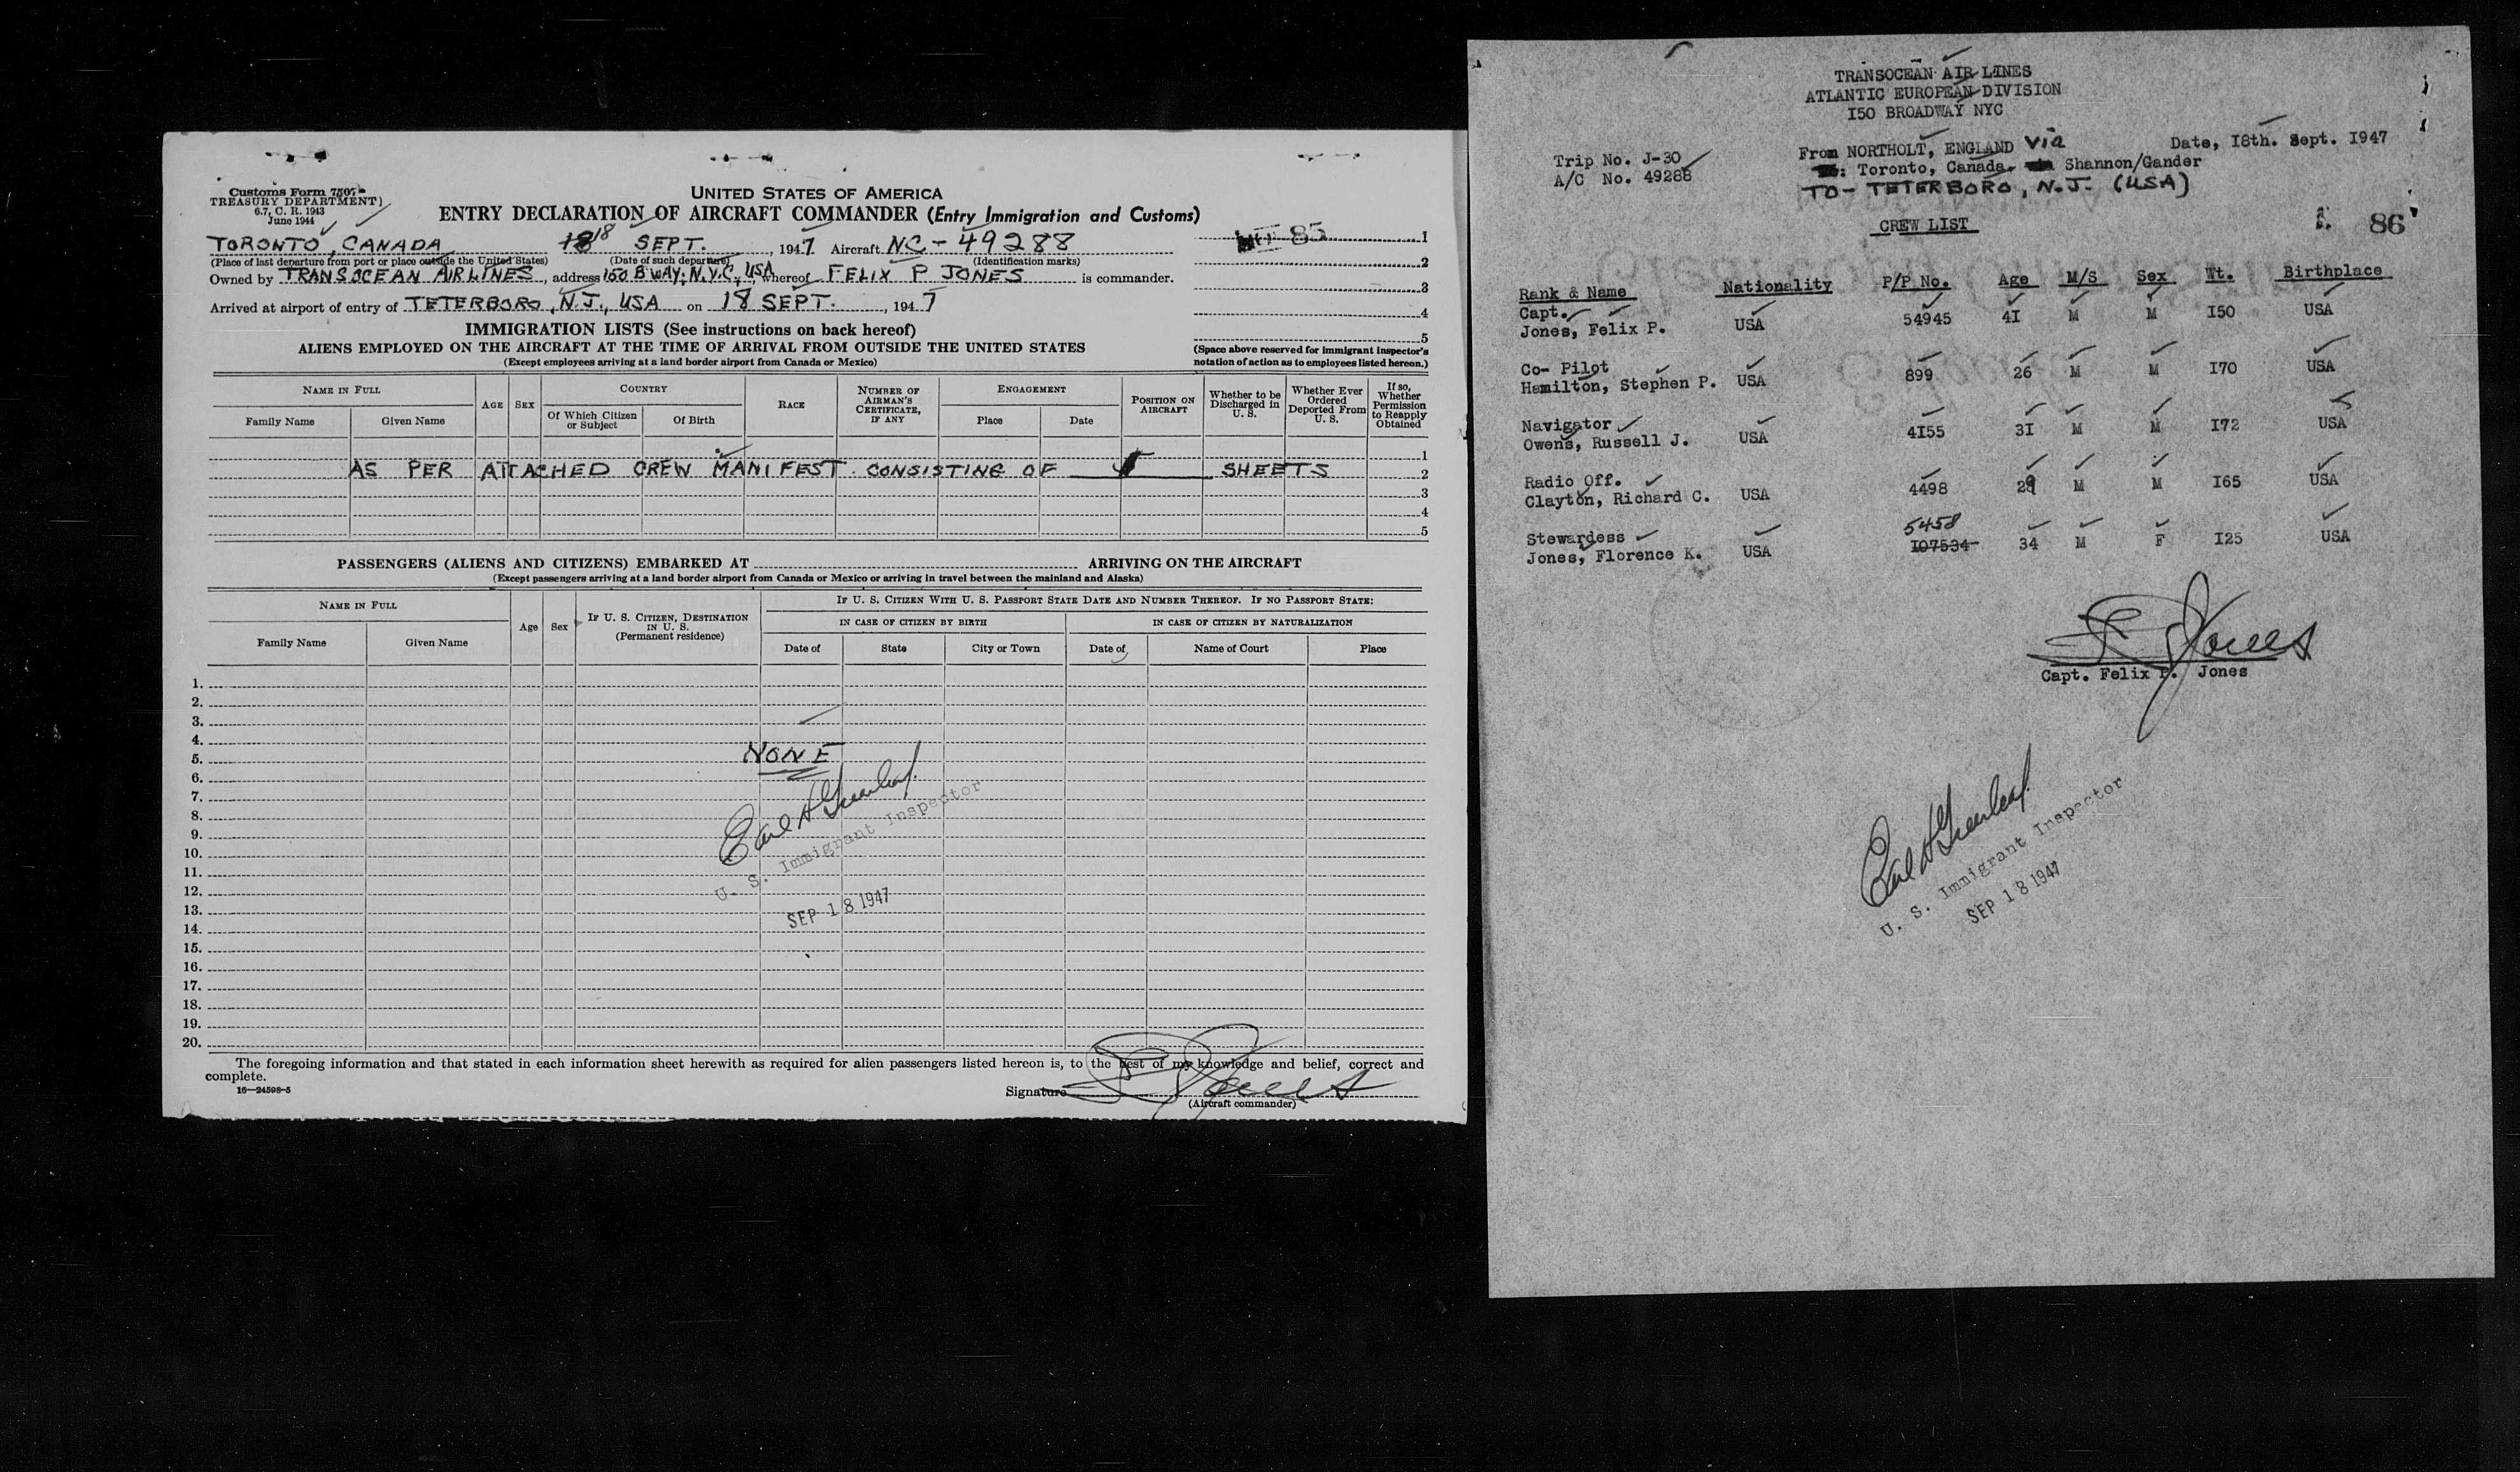 Customs Form 7507
TREASURY DEPARTMENT
6.7, C. R. 1943
June 1944
UNITED STATES OF AMERICA
ENTRY DECLARATION OF AIRCRAFT COMMANDER (Entry Immigration and Customs)
TORONTO, CANADA 18 SEPT. , 1947 Aircraft NC-49288
(Place of last departure from port or place outside the United States) (Date of such departure) (Identification marks)
Owned by TRANSOCEAN AIRLINES, address 150 B'WAY, N.Y.C., USA, whereof FELIX P JONES is commander.
Arrived at airport of entry of TETERBORO, N.J., USA on 18 SEPT. , 1947
85 1
2
3
4
5
(Space above reserved for immigrant inspector's notation of action as to employees listed hereon.)
IMMIGRATION LISTS (See instructions on back hereof)
ALIENS EMPLOYED ON THE AIRCRAFT AT THE TIME OF ARRIVAL FROM OUTSIDE THE UNITED STATES
(Except employees arriving at a land border airport from Canada or Mexico)
NAME IN FULL
Family Name Given Name
AGE SEX
COUNTRY
Of Which Citizen or Subject Of Birth
RACE
NUMBER OF AIRMAN'S CERTIFICATE, IF ANY
ENGAGEMENT
Place Date
POSITION ON AIRCRAFT
Whether to be Discharged in U. S.
Whether Ever Ordered Deported From U. S.
If so, Whether Permission to Reapply Obtained
1
AS PER ATTACHED CREW MANIFEST CONSISTING OF SHEETS 2
3
4
5
PASSENGERS (ALIENS AND CITIZENS) EMBARKED AT ARRIVING ON THE AIRCRAFT
(Except passengers arriving at a land border airport from Canada or Mexico or arriving in travel between the mainland and Alaska)
NAME IN FULL
Family Name Given Name
Age Sex
IF U. S. CITIZEN, DESTINATION IN U. S.
(Permanent residence)
IF U. S. CITIZEN WITH U. S. PASSPORT STATE DATE AND NUMBER THEREOF. IF NO PASSPORT STATE:
IN CASE OF CITIZEN BY BIRTH IN CASE OF CITIZEN BY NATURALIZATION
Date of State City or Town Date of Name of Court Place
1.
2.
3.
4.
5. NONE
6.
7.
8.
9.
10.
11.
12.
13.
14.
15.
16.
17.
18.
19.
20.
Earl A Greenleaf
U. S. Immigrant Inspector
SEP 18 1947
The foregoing information and that stated in each information sheet herewith as required for alien passengers listed hereon is, to the best of my knowledge and belief, correct and
complete.
16—24598-5
Signature F P Jones
(Aircraft commander)
TRANSOCEAN AIR LINES
ATLANTIC EUROPEAN DIVISION
I50 BROADWAY NYC
Trip No. J-30
A/C No. 49288
From NORTHOLT, ENGLAND Via
: Toronto, Canada, Shannon/Gander
TO - TETERBORO, N.J. (USA)
Date, I8th. Sept. I947
CREW LIST
86
Rank & Name Nationality P/P No. Age M/S Sex Wt. Birthplace
Capt.
Jones, Felix P. USA 54945 4I M M I50 USA
Co- Pilot
Hamilton, Stephen P. USA 899 26 M M I70 USA
Navigator
Owens, Russell J. USA 4I55 3I M M I72 USA
Radio Off.
Clayton, Richard C. USA 4498 29 M M I65 USA
5458
Stewardess
Jones, Florence K. USA I07534 34 M F I25 USA
F P Jones
Capt. Felix P. Jones
Earl A Greenleaf
U. S. Immigrant Inspector
SEP 18 1947